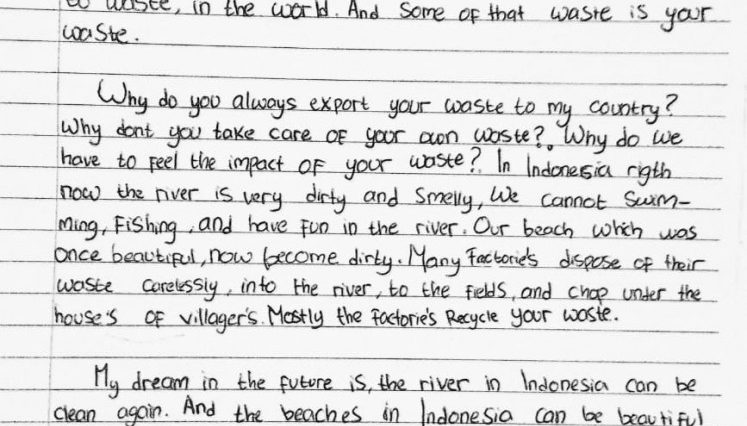 waste, in the world. And Some of that waste is your
waste.
Why do you always export your waste to my country?
Why dont you take care of your own waste? Why do we
have to feel the impact of your waste? In Indonesia rigth
now the river is very dirty and Smelly, We cannot Swim-
ming, Fishing, and have fun in the river. Our beach which was
once beautiful, now become dirty. Many Factorie's dispose of their
waste carelessly, into the river, to the fields, and chop under the
house's of villager's. Mostly the factorie's Recycle your waste.
My dream in the future is, the river in Indonesia can be
clean again. And the beaches in Indonesia can be beautiful